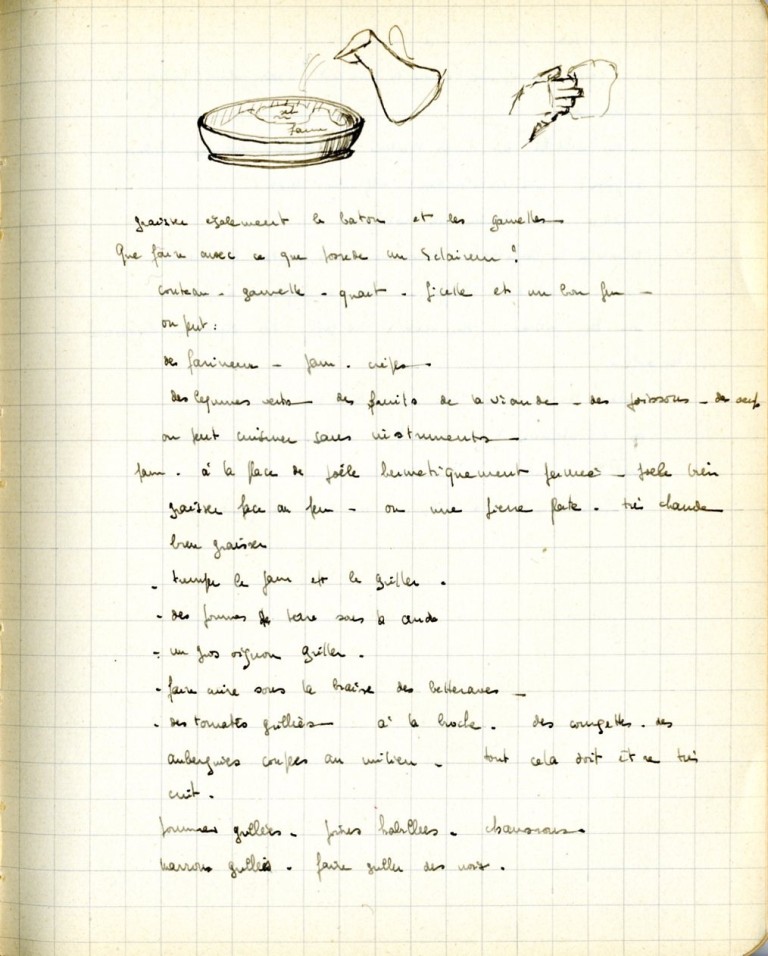 sel
farine
graisser également le baton et les gamelles
Que faire avec ce que possede un Eclaireur ?
couteau - gamelle - quart - ficelle et un bon feu -
on peut :
des farineux - pain - crêpes
des legumes verts des fruits de la viande - des poissons - des oeufs
on peut cuisiner sans instruments
pain - à la place de poële hermetiquement fermée - poele bien
graisser face au feu - ou une pierre plate - très chaude
bien graisser
- trempe le pain et le griller .
- des pommes de terre sous la cendre
- un gros oignon griller .
- faire cuire sous la braise des betteraves -
- des tomates grillées à la broche . des courgettes . des
aubergines coupes au milieu - tout cela doit etre très
cuit .
pommes grillées - poires habillées - chaussons
marrons grillés - faire griller des noix .